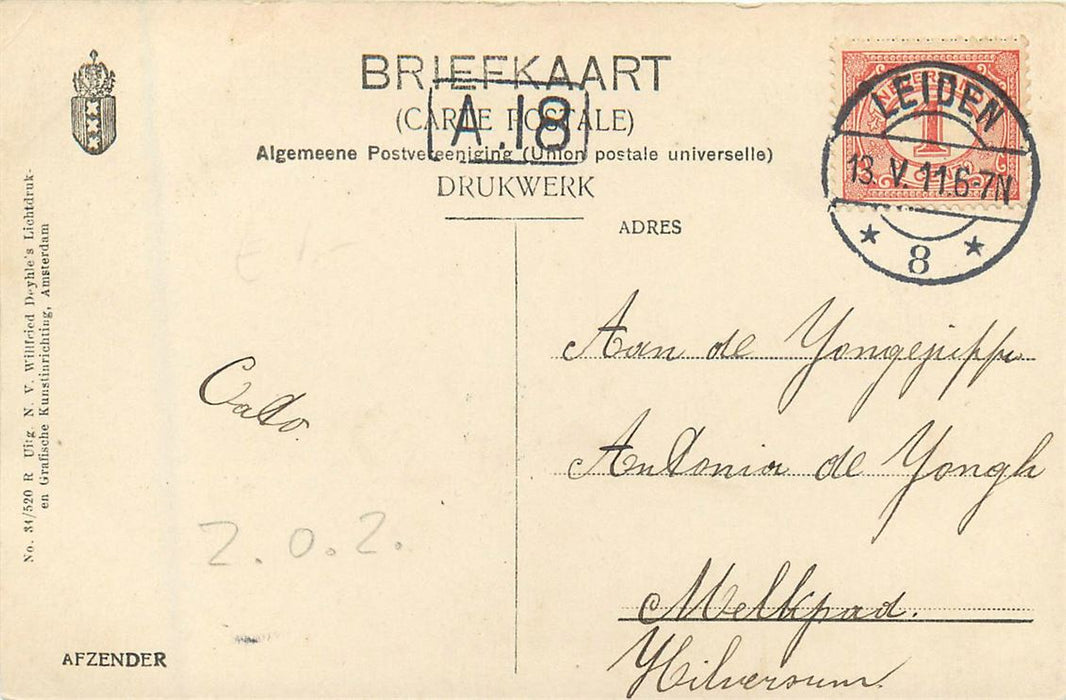 BRIEFKAART
(CARTE POSTALE)
A.18
Algemeene Postvereeniging (Union postale universelle)
DRUKWERK
ADRES
NEDERLAND
1
LEIDEN
13.V.11.6-7N
* 8 *
No. 34/520 R Uitg. N. V. Willfried Deyhle's Lichtdruk-
en Grafische Kunstinrichting, Amsterdam
Aan de
Antonia de Yongh
Melkpad.
Hilversum.
2.0.2.
AFZENDER